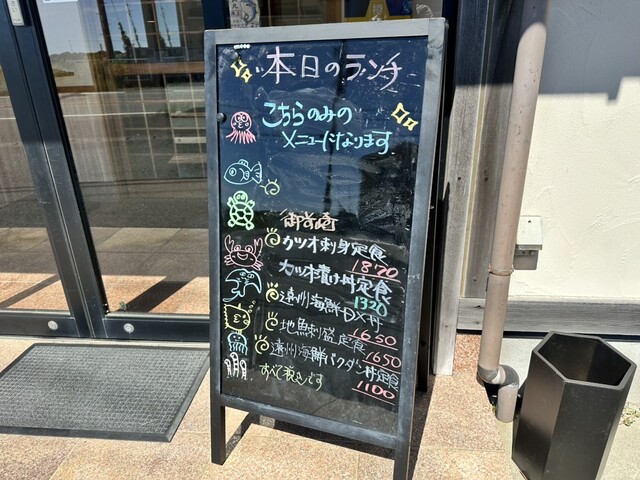 本日のランチ
こちらのみの
メニューになります
御前崎
カツオ刺身定食
1870
カツオ漬け丼定食
1320
遠州海鮮DX丼
1650
地魚刺盛定食
1650
遠州海鮮バクダン丼定食
1100
すべて税込です